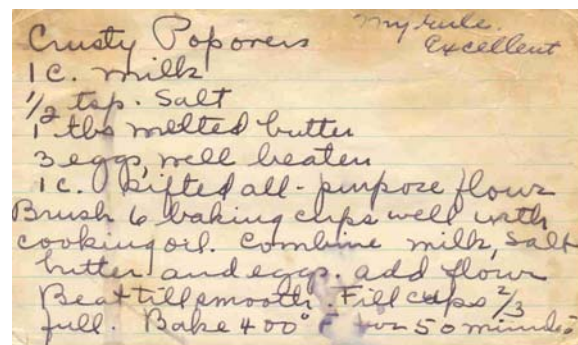 My rule.
Excellent
Crusty Popovers
1 c. milk
1/2 tsp. salt
1 tbs melted butter
3 eggs, well beaten
1 c. sifted all-purpose flour
Brush 6 baking cups well with
cooking oil. Combine milk, salt
butter and eggs. add flour
Beat till smooth. Fill cups 2/3
full. Bake 400° F for 50 minutes